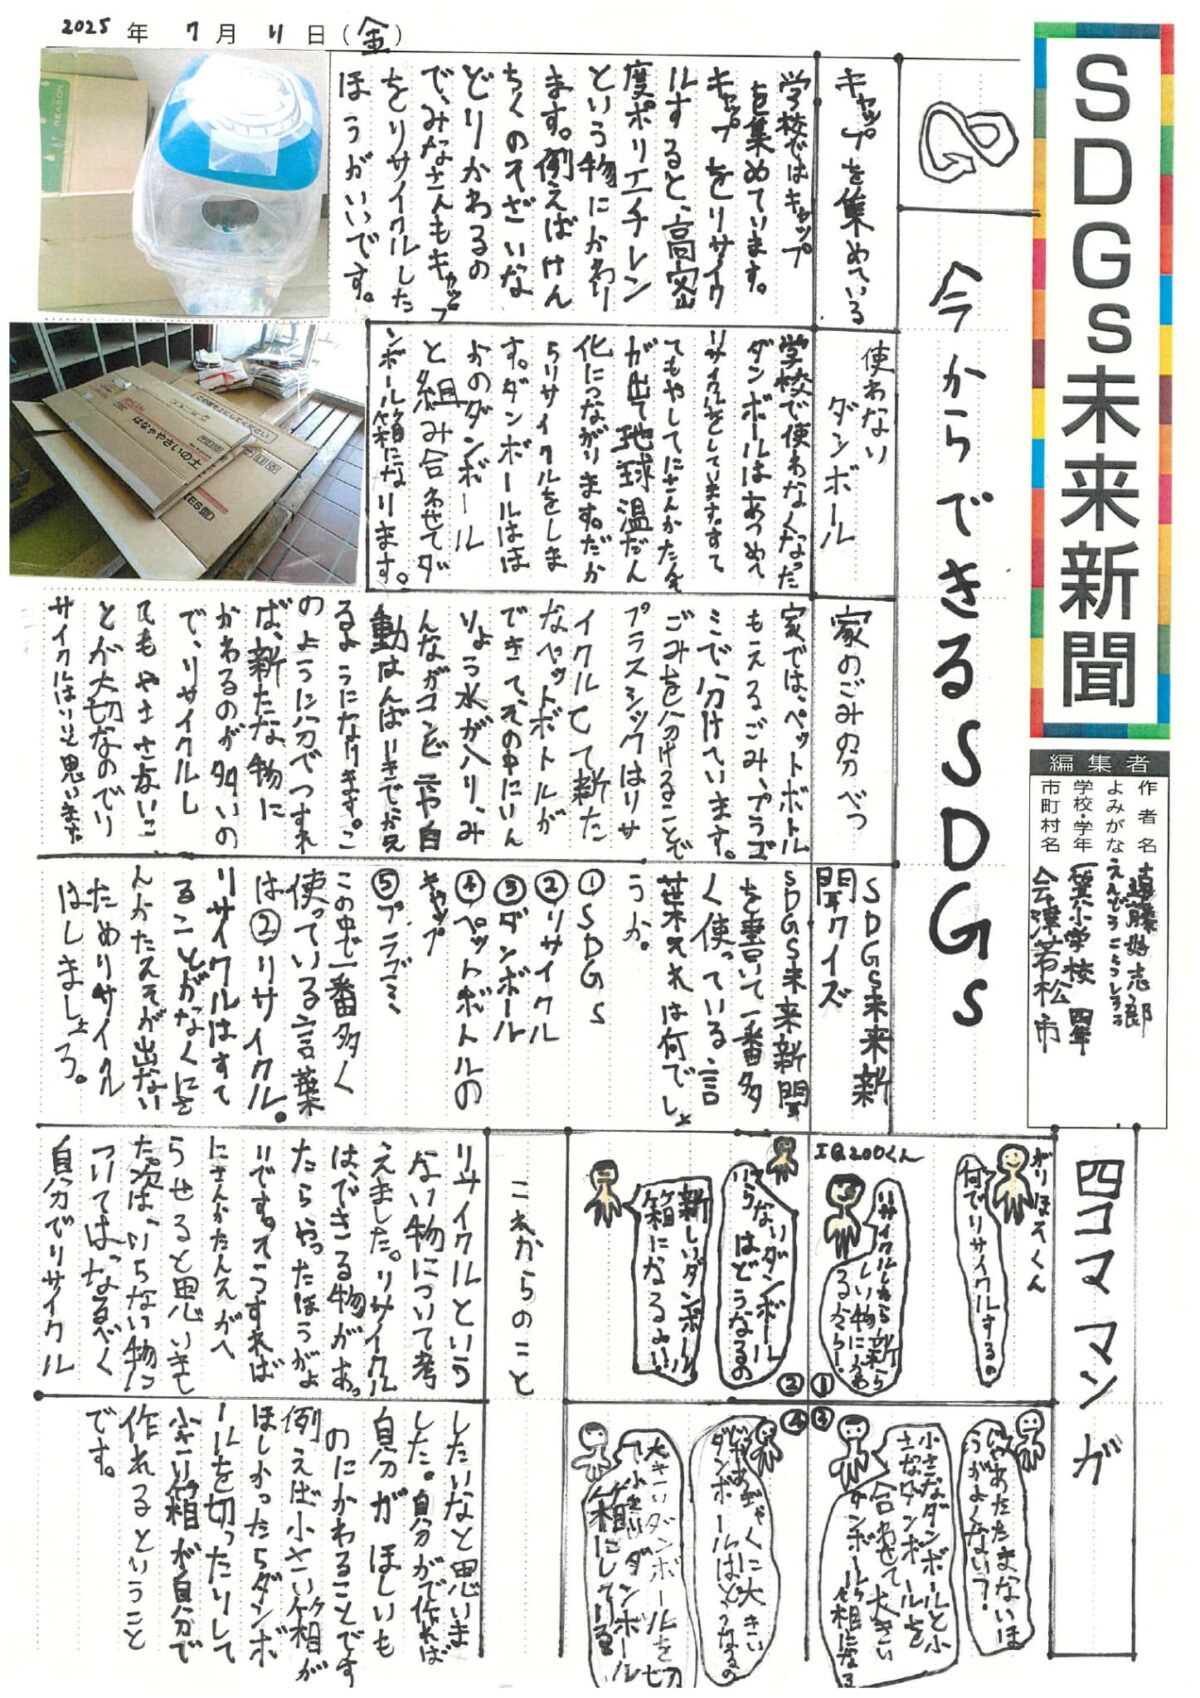 2025年 7月 11日(金)
SDGs未来新聞
編集者
作者名 遠藤
よみがな えんどうこうしろう
学校・学年 小学校 四年
市町村名 会津若松市
今からできるSDGs
キャップを集めている
学校ではキャップ
を集めています。
キャップをリサイク
ルすると、高密
度ポリエチレン
という物にかわり
ます。例えばけん
ちくのそざいな
どりかわるの
で、みなさんもキャップ
をリサイクルした
ほうがいいです。
使わない
ダンボール
学校で使わなくなった
ダンボールはあつめて
リサイクルをしています。すて
てもやしてにさんかたんそ
が出て地球温だん
化につながります。だか
らリサイクルをしま
す。ダンボールはほ
かのダンボール
と組み合わせてダ
ンボール箱になります。
はなややさいの土
家のごみの分べつ
家では、ペットボトル
もえるごみ、プラゴ
ミで分けています。
ごみを分けることで
プラスシックはリサ
イクルして新た
なペットボトルが
できて、その中にいん
りょう水が入り、み
んながコンビニや自
動はんばいきでが買え
るようになります。こ
のように分でつすれ
ば、新たな物に
かわるのが多いの
で、リサイクルし
てもやさないこ
とが大切なのでリ
サイクルはいいと思います
SDGs未来新
聞クイズ
SDGs未来新聞
を書いて一番多
く使っている言
葉それは何でしょ
うか。
①SDGs
②リサイクル
③ダンボール
④ペットボトルの
キャップ
⑤プラゴミ
この中で一番多く
使っている言葉
は②リサイクル。
リサイクルはすて
ることがなくにさ
んかたんそが出ない
ためリサイクル
はしましょう。
四コママンガ
がりほそくん
何でリサイクルするの
IQ200くん
リサイクルしたら新
しい物にかわ
るから!
①
いらないダンボール
はどうなるの
新しいダンボール
箱になるよ。
②
じゃあたたまないほ
うがよくない?
小さなダンボールと小
さなダンボールを
合わせて大きい
ダンボール箱になる
③
じゃあぎゃくに大きい
ダンボールはどうなるの
大きいダンボールを切
って小さいダンボール
箱にしている
④
これからのこと
リサイクルという
ない物について考
えました。リサイクル
は、できる物があっ
たらやったほうがよ
いです。そうすれば
にさんかたんそがへ
らせると思いまし
た。次は、いらない物に
ついてはなるべく
自分でリサイクル
したいなと思いま
した。自分がで作れば
自分がほしいも
のにかわることです
例えば小さい箱が
ほしかったらダンボ
ールを切ったりして
小さい箱が自分で
作れるということ
です。